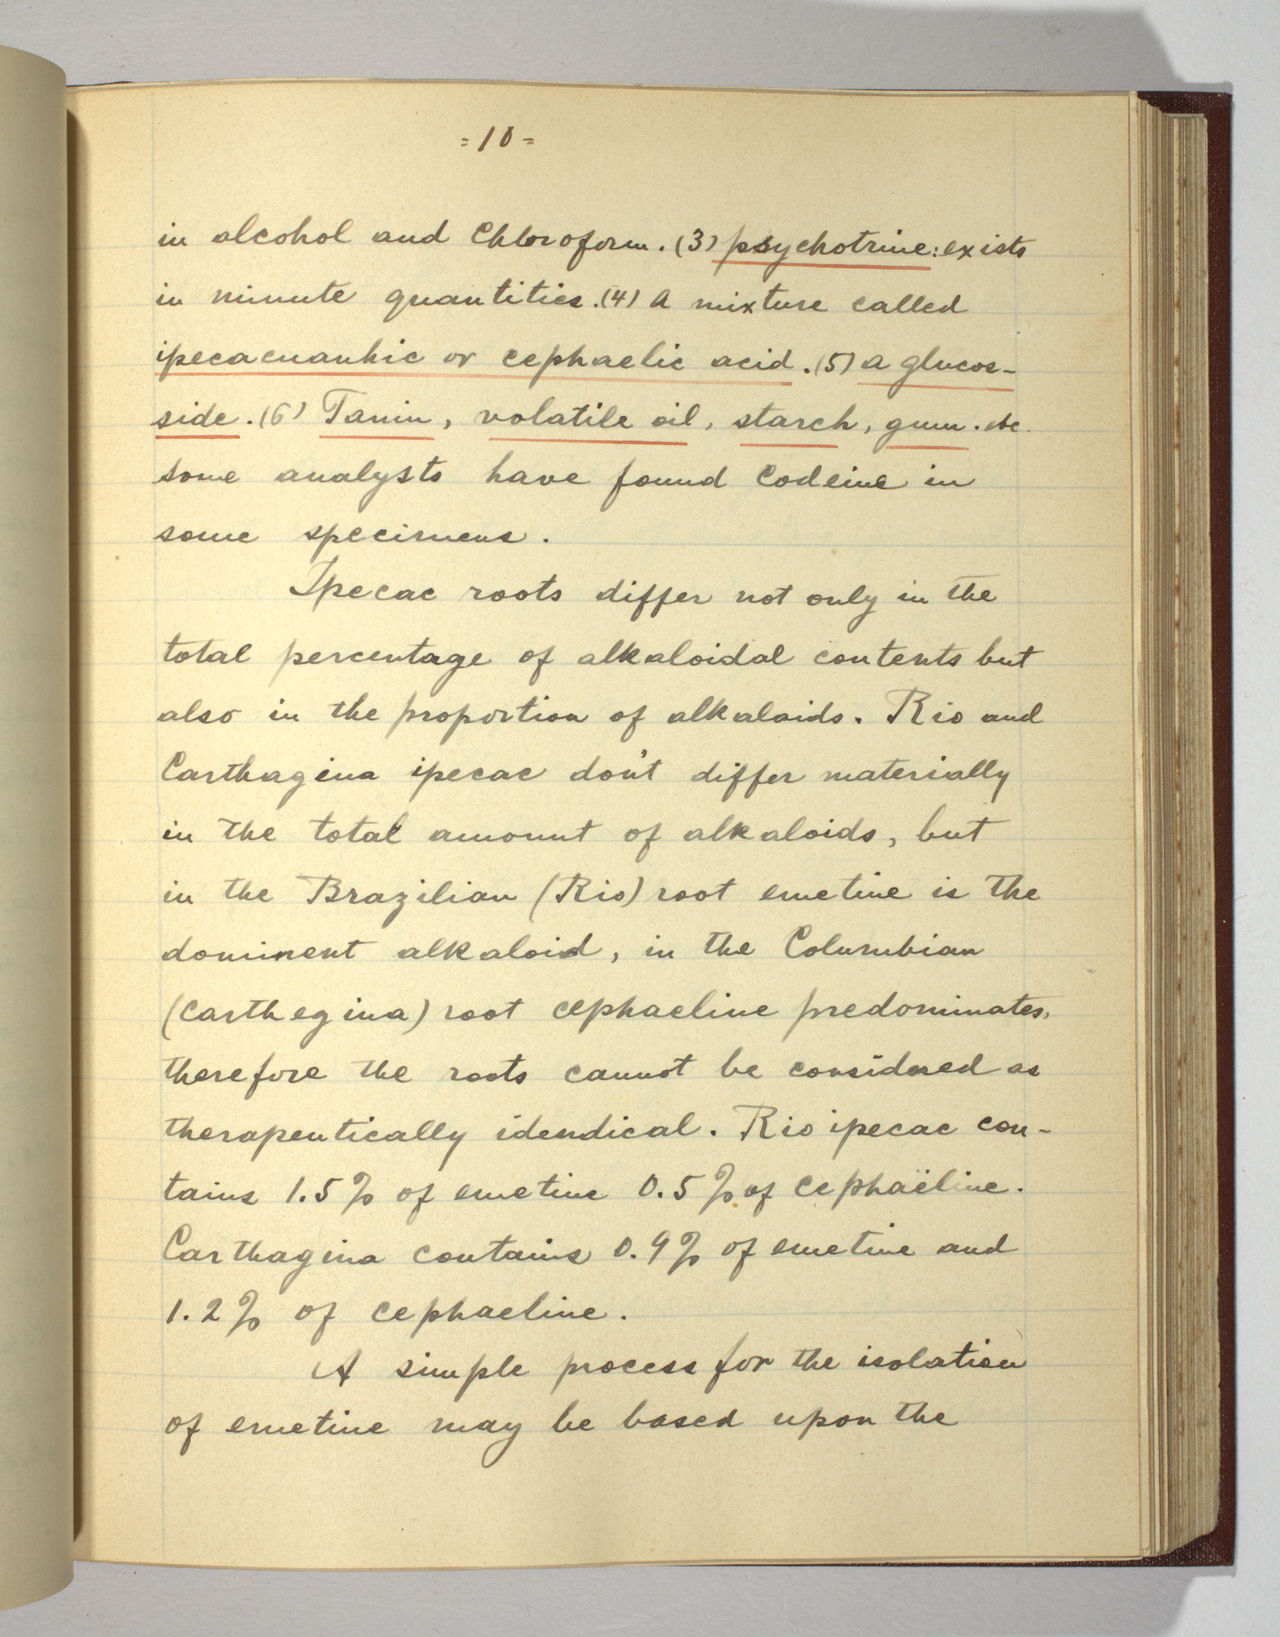 =10=
in alcohol and Chloroform. (3) psychotrine: exists
in minute quantities. (4) A mixture called
ipecacuanhic or cephaelic acid. (5) a glucos-
side. (6) Tanin, volatile oil, starch, gum. etc.
some analysts have found Codeine in
some specimens.
Ipecac roots differ not only in the
total percentage of alkaloidal contents but
also in the proportion of alkaloids. Rio and
Carthagina ipecac don't differ materially
in the total amount of alkaloids, but
in the Brazilian (Rio) root emetine is the
dominent alkaloid, in the Columbian
(Carthegina) root cephaeline predominates,
therefore the roots cannot be considered as
therapeutically idendical. Rio ipecac con-
tains 1.5% of emetine 0.5% of cephaëline.
Carthagina contains 0.9% of emetine and
1.2% of cephaeline.
A simple process for the isolation
of emetine may be based upon the